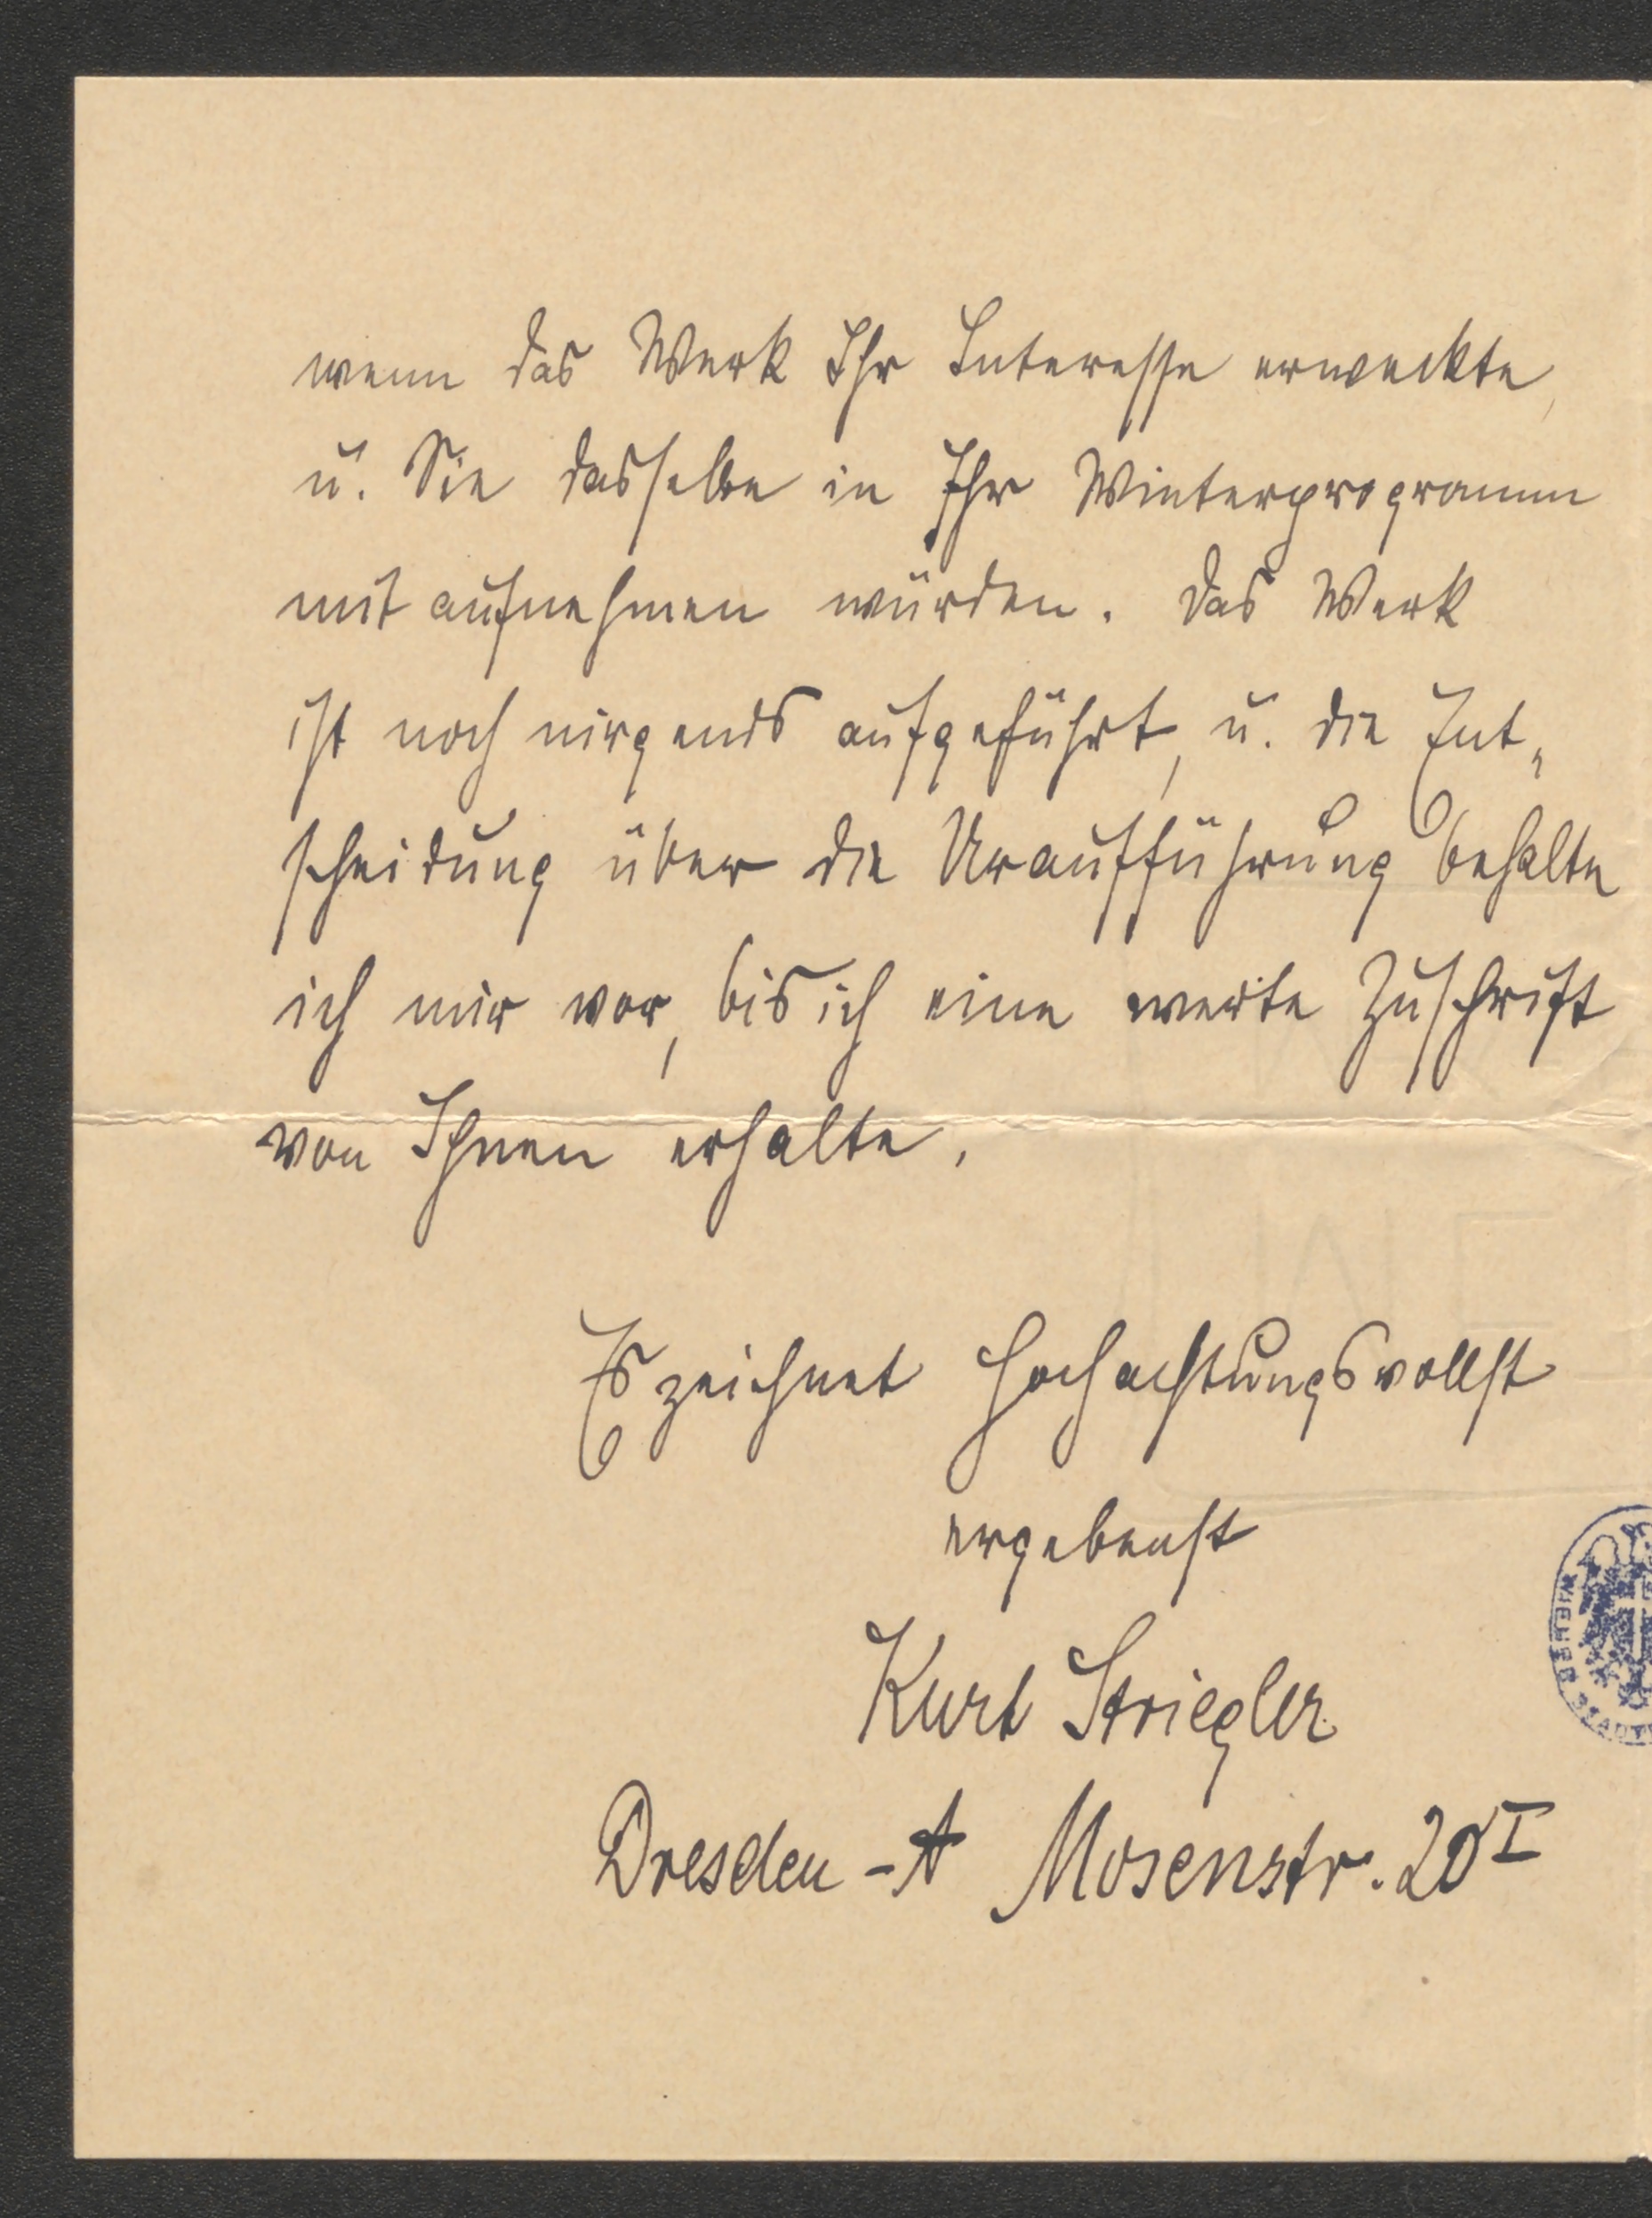 wenn das Werk Ihr Interesse erweckte,
u. Sie dasselbe in Ihr Winterprogramm
mit aufnehmen würden. Das Werk
ist noch nirgends aufgeführt, u. die Ent-
scheidung über die Uraufführung behalte
ich mir vor, bis ich eine werte Zuschrift
von Ihnen erhalte.
Es zeichnet hochachtungsvollst
ergebenst
Kurt Striegler
Dresden-A Mosenstr. 20 I
WIENER STADT